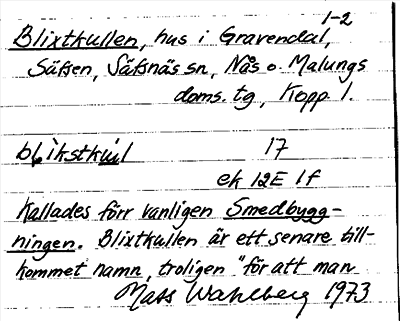 1-2
Blixtkullen, hus i Gravendal,
Säfsen, Säfsnäs sn, Nås o. Malungs
doms. tg, Kopp l.
17
ek 12E 1f
Kallades förr vanligen Smedbygg-
ningen. Blixtkullen är ett senare till-
kommet namn, troligen "för att man
Mats Wahlberg 1973